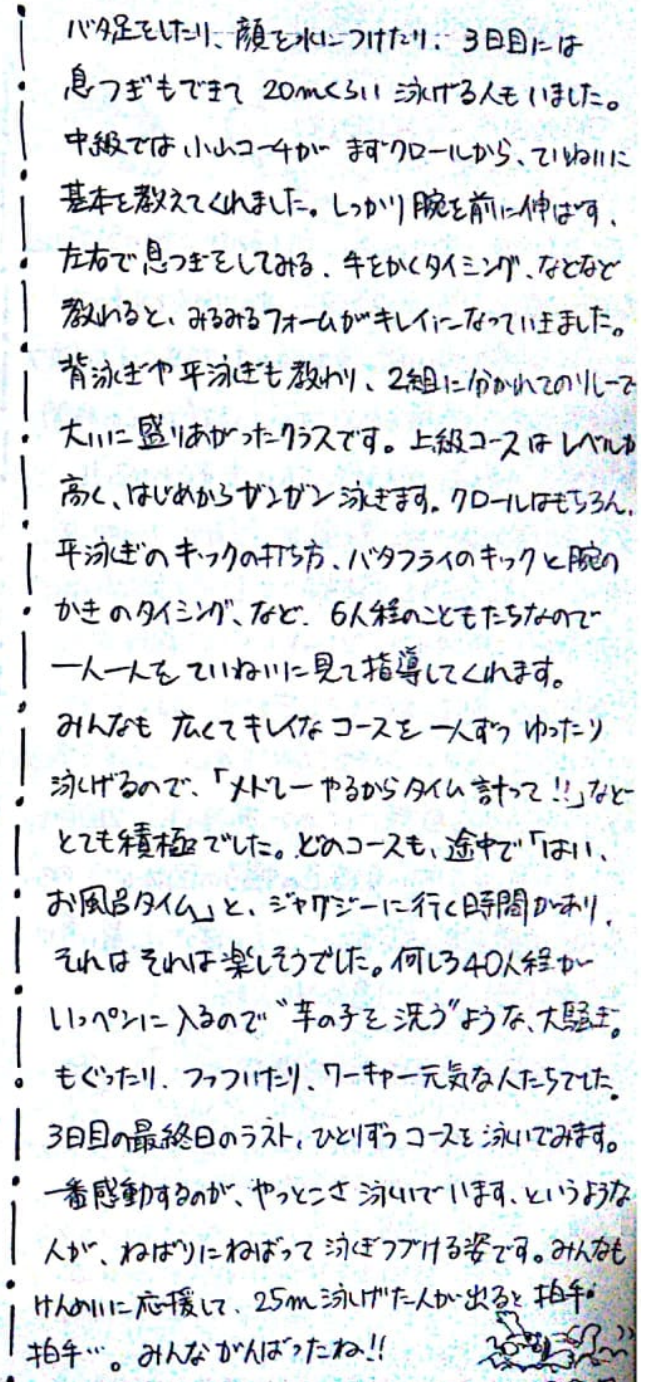 バタ足をしたり、顔を水につけたり、3日目には
息つぎもできて 20mくらい 泳げる人もいました。
中級では 小山コーチが まずクロールから、ていねいに
基本を教えてくれました。しっかり腕を前に伸ばす、
左右で息つぎをしてみる、手をかくタイミング、などなど
教わると、みるみるフォームがキレイになっていきました。
背泳ぎや平泳ぎも教わり、2組に分かれてのリレーで
大いに盛りあがったクラスです。上級コースはレベルが
高く、はじめからガンガン泳ぎます。クロールはもちろん、
平泳ぎのキックの打ち方、バタフライのキックと腕の
かきのタイミング、など、6人程のこどもたちなので
一人一人を ていねいに見て指導してくれます。
みんなも 広くてキレイなコースを 一人ずつ ゆったり
泳げるので、「メドレーやるからタイム計って!!」など
とても積極的でした。どのコースも、途中で「はい、
お風呂タイム」と、ジャグジーに行く時間があり、
それは それは楽しそうでした。何しろ40人程が
いっぺンに入るので〝芋の子を洗う〟ような、大騒ぎ。
もぐったり、つっついたり、ワーキャー元気な人たちでした。
3日目の最終日のラスト、ひとりずつコースを泳いでみます。
一番感動するのが、やっとこさ泳いでいます、というような
人が、ねばりにねばって泳ぎつづける姿です。みんなも
けんめいに応援して、25m泳げた人が出ると拍手・
拍手…。みんながんばったね!!